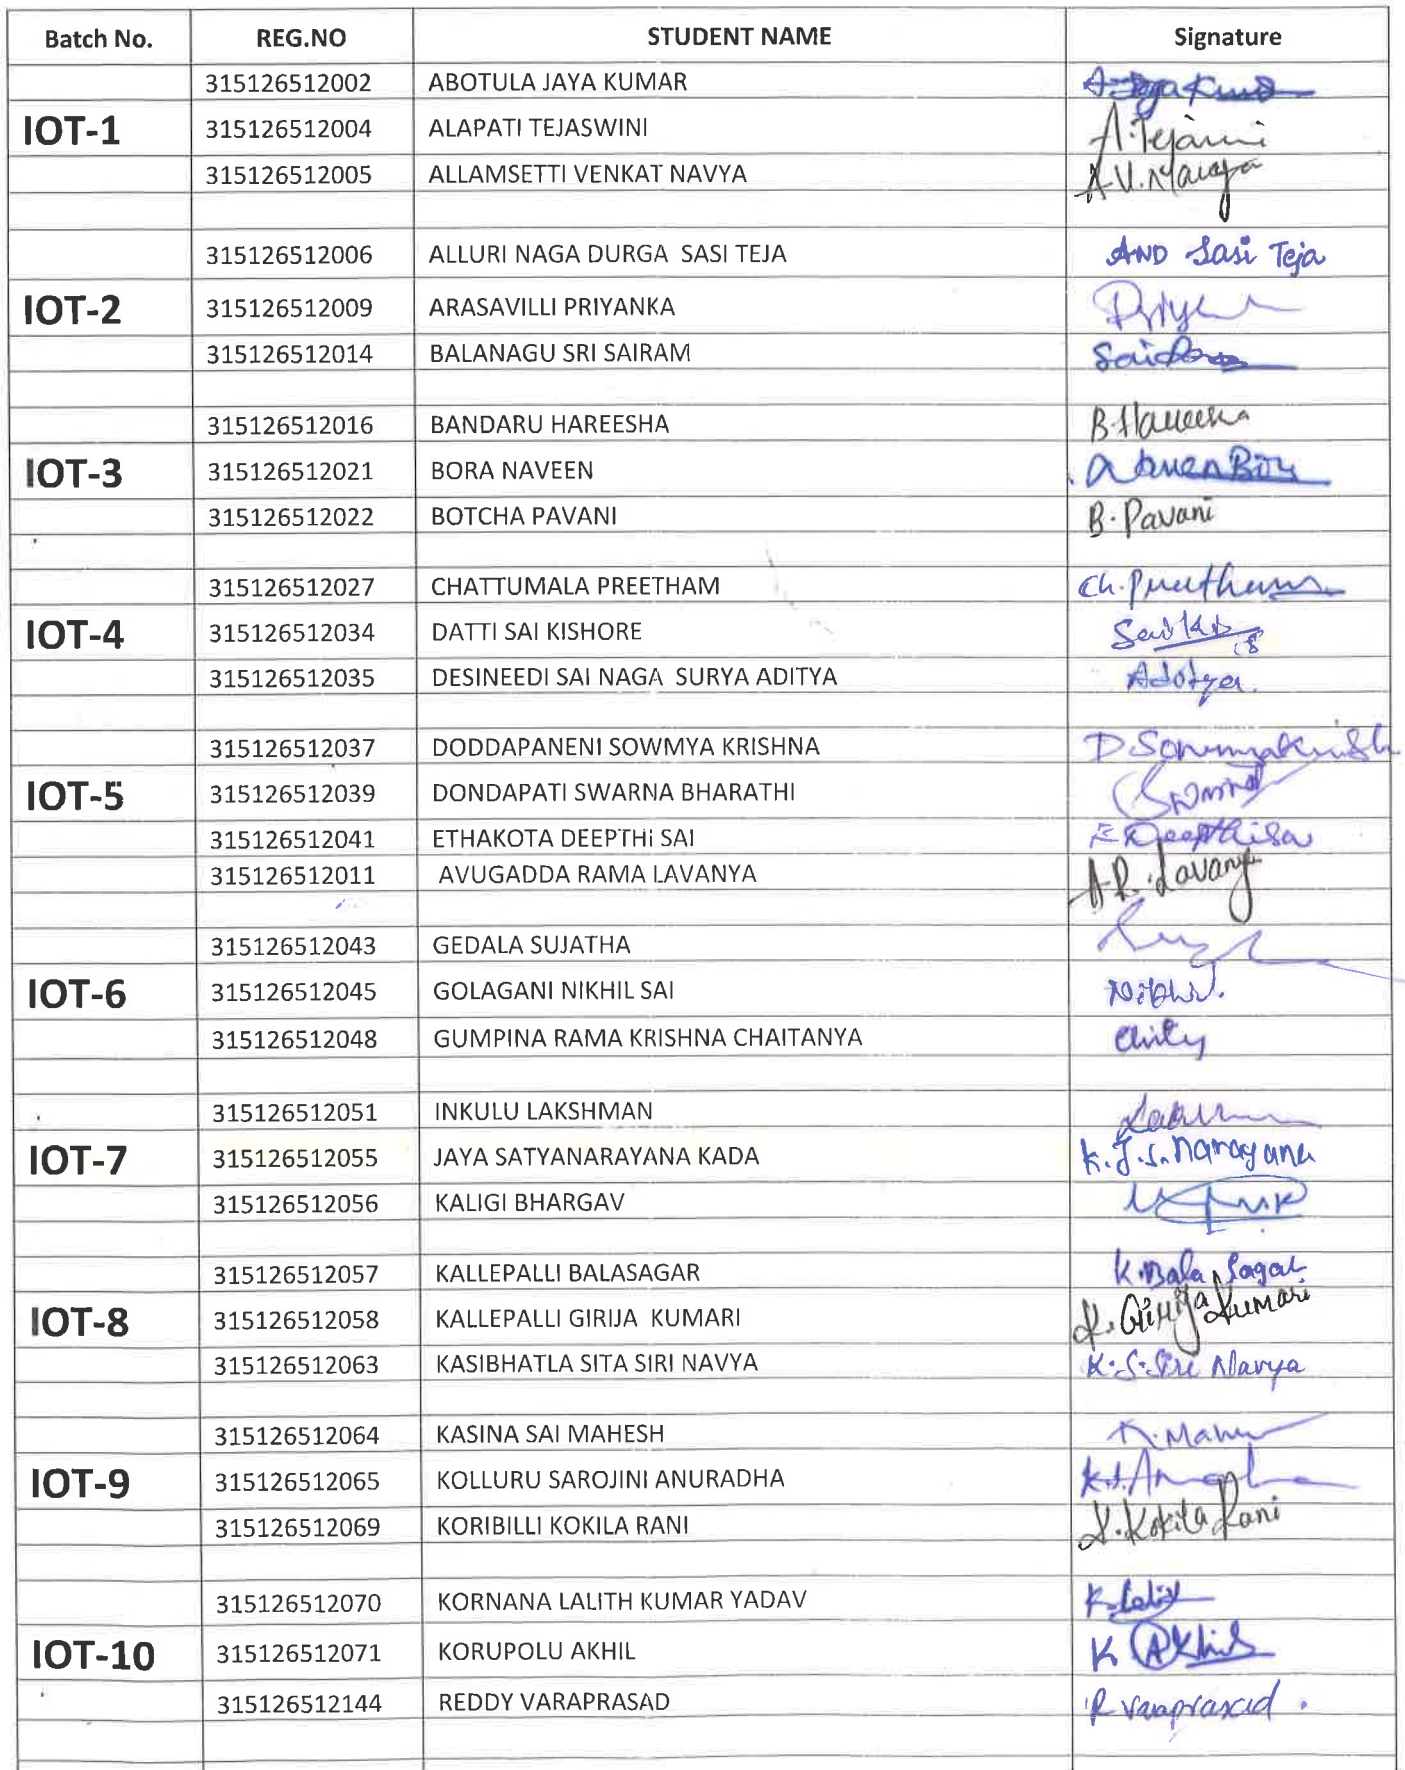 Batch No. REG.NO STUDENT NAME Signature
315126512002 ABOTULA JAYA KUMAR
IOT-1 315126512004 ALAPATI TEJASWINI A.Tejaswini
315126512005 ALLAMSETTI VENKAT NAVYA A.V.Navya
315126512006 ALLURI NAGA DURGA SASI TEJA AND Sasi Teja
IOT-2 315126512009 ARASAVILLI PRIYANKA
315126512014 BALANAGU SRI SAIRAM
315126512016 BANDARU HAREESHA B.Hareesha
IOT-3 315126512021 BORA NAVEEN
315126512022 BOTCHA PAVANI B.Pavani
315126512027 CHATTUMALA PREETHAM Ch.Preetham
IOT-4 315126512034 DATTI SAI KISHORE
315126512035 DESINEEDI SAI NAGA SURYA ADITYA Aditya.
315126512037 DODDAPANENI SOWMYA KRISHNA
IOT-5 315126512039 DONDAPATI SWARNA BHARATHI
315126512041 ETHAKOTA DEEPTHI SAI E Deepthisai
315126512011 AVUGADDA RAMA LAVANYA A.R.Lavanya
315126512043 GEDALA SUJATHA
IOT-6 315126512045 GOLAGANI NIKHIL SAI
315126512048 GUMPINA RAMA KRISHNA CHAITANYA
315126512051 INKULU LAKSHMAN
IOT-7 315126512055 JAYA SATYANARAYANA KADA K.J.S.Narayana
315126512056 KALIGI BHARGAV
315126512057 KALLEPALLI BALASAGAR K.Bala Sagar
IOT-8 315126512058 KALLEPALLI GIRIJA KUMARI K.Girija Kumari
315126512063 KASIBHATLA SITA SIRI NAVYA K.S.Siri Navya
315126512064 KASINA SAI MAHESH
IOT-9 315126512065 KOLLURU SAROJINI ANURADHA
315126512069 KORIBILLI KOKILA RANI K.Kokila Rani
315126512070 KORNANA LALITH KUMAR YADAV K.Lalith
IOT-10 315126512071 KORUPOLU AKHIL K Akhil
315126512144 REDDY VARAPRASAD R Varaprasad.